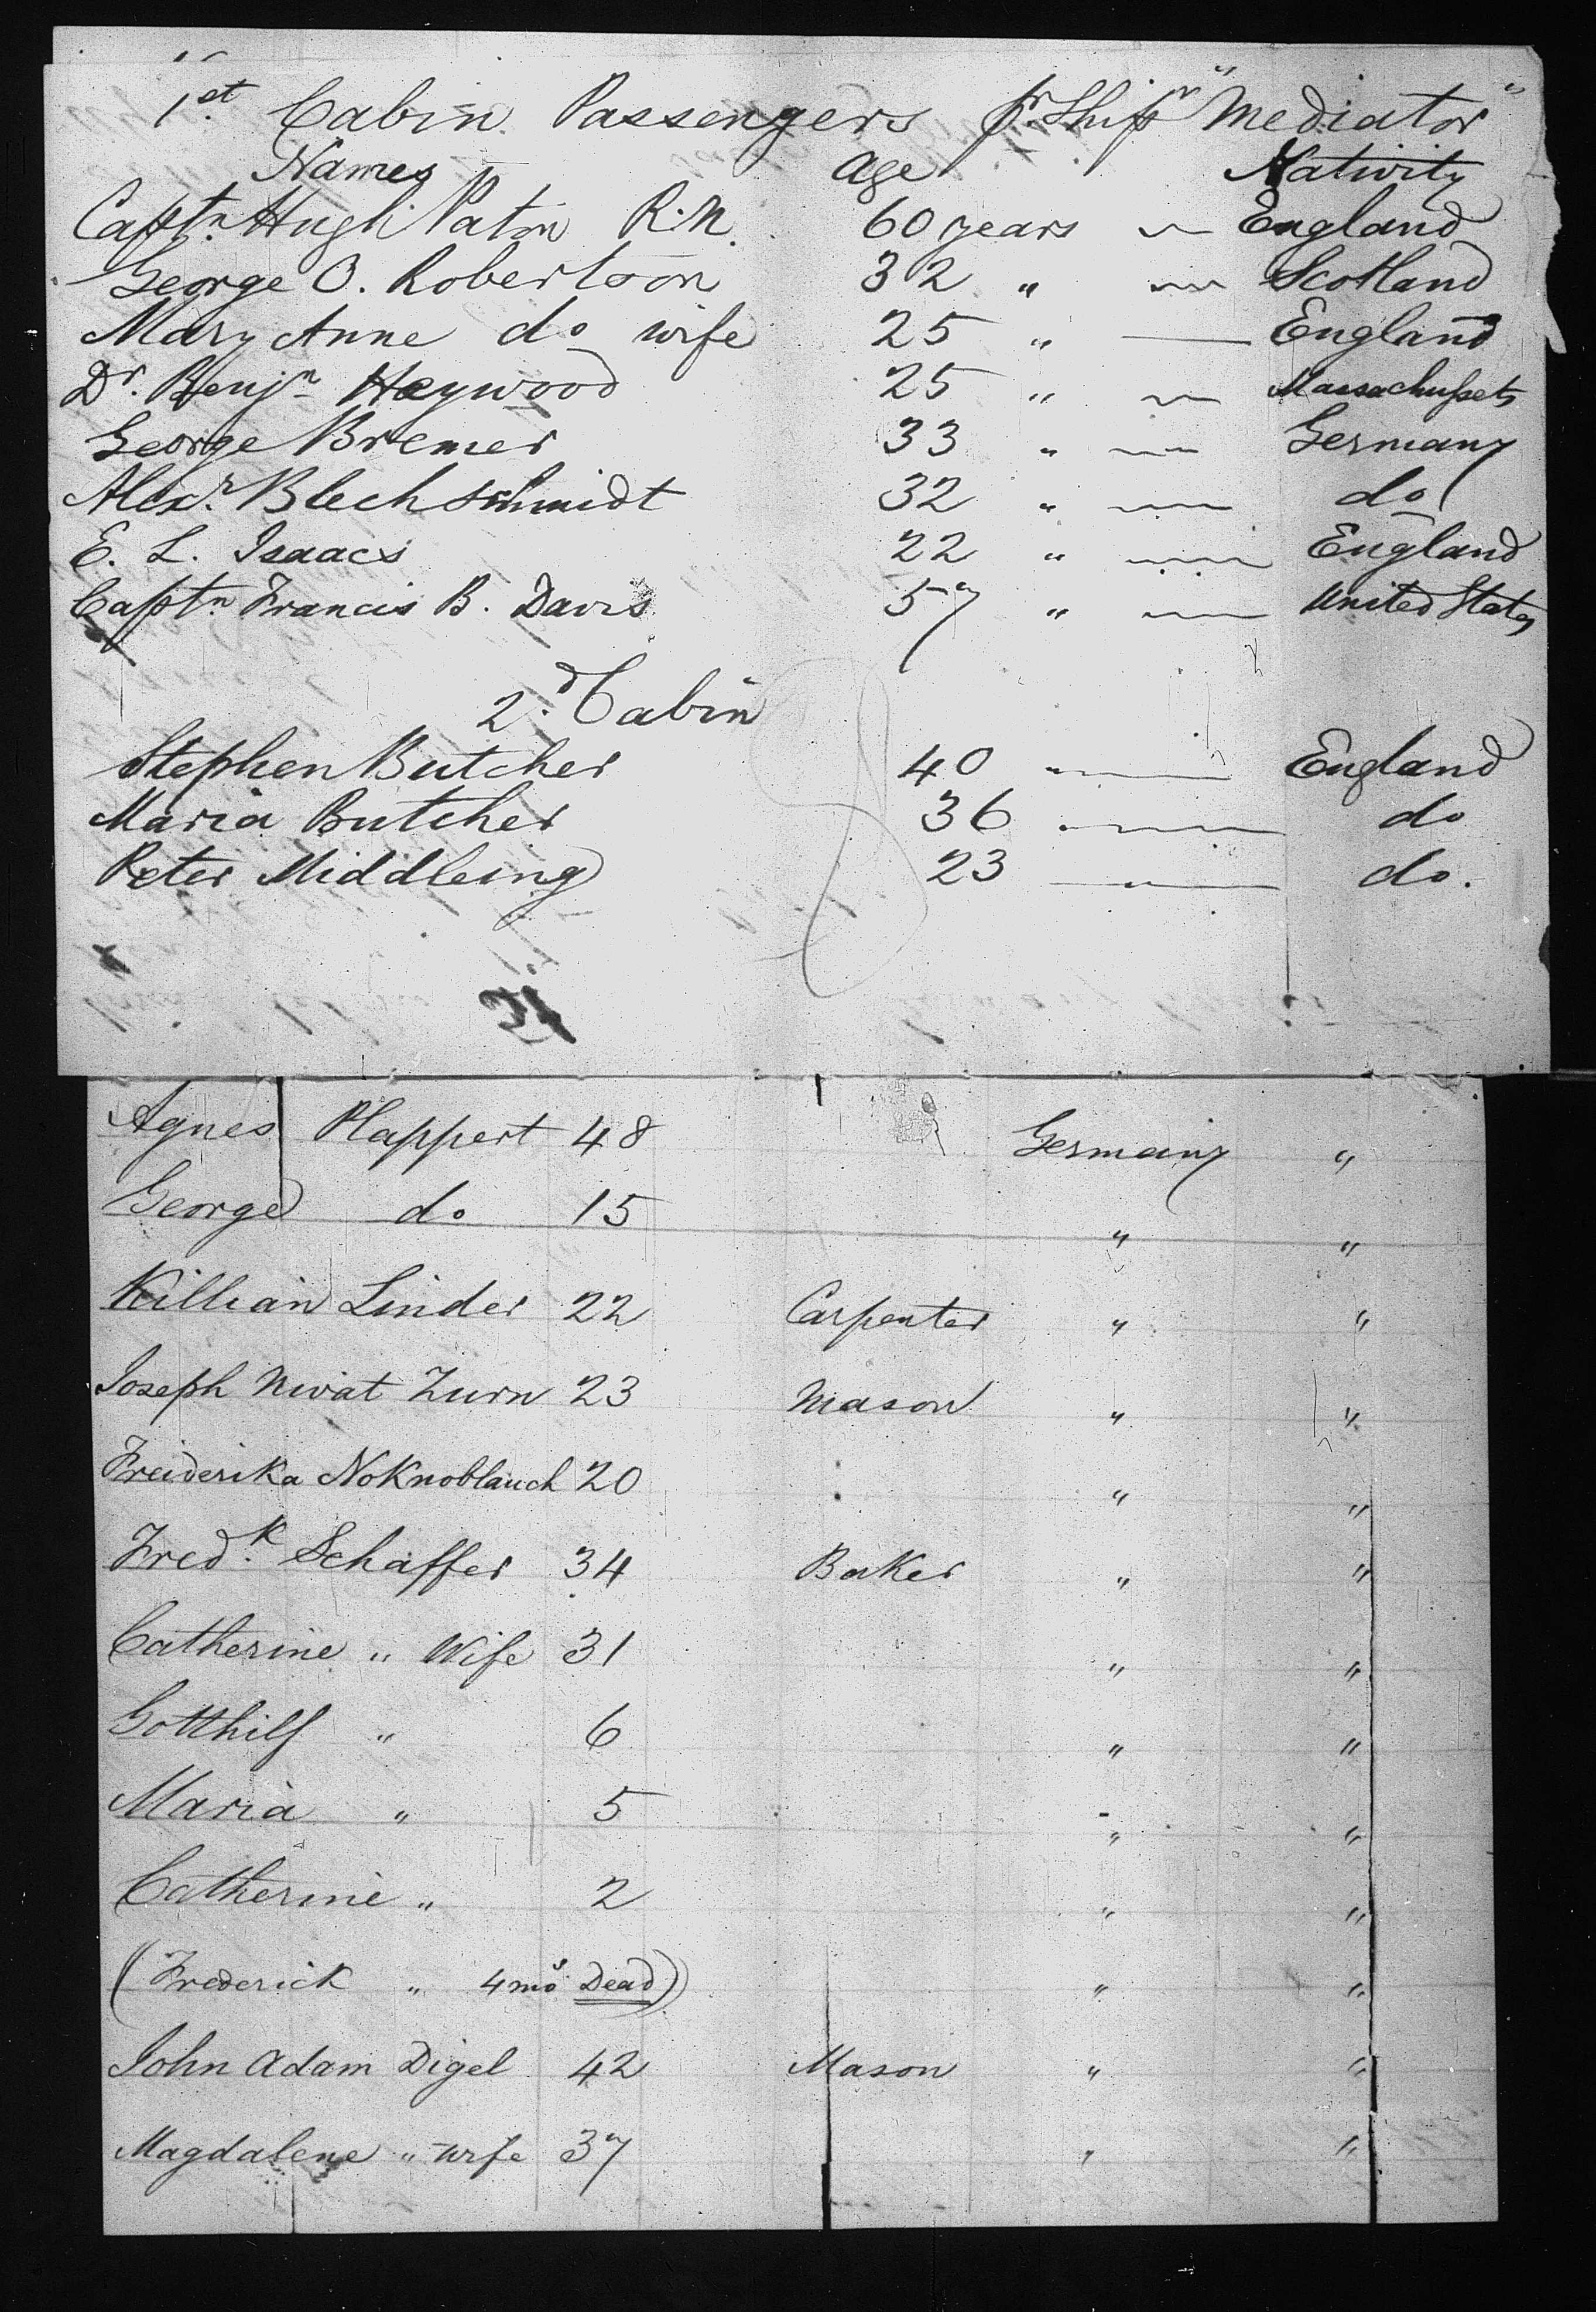 1st Cabin Passengers pr Ship "Mediator"
Names Age Nativity
Captn Hugh Paton R.N. 60 years England
George O. Robertson 32 " Scotland
Mary Anne do wife 25 " England
Dr. Benjn Heywood 25 " Massachussets
George Bremer 33 " Germany
Alexr. Blechschmidt 32 " do
E. L. Isaacs 22 " England
Captn Francis B. Davis 57 " United States
2d. Cabin
Stephen Butcher 40 " England
Maria Butcher 36 " do
Peter Middleing 23 " do.
Agnes Happert 48 Germany "
George do 15 " "
Killian Linder 22 Carpenter " "
Joseph Zurn 23 Mason " "
Freiderika NoKnoblauch 20 " "
Fredk. Schaffer 34 Baker " "
Catherine " Wife 31 " "
Gotthilf " 6 " "
Maria " 5 " "
Catherine " 2 " "
(Frederick " 4 mos Dead) " "
John Adam Digel 42 Mason " "
Magdalene " wife 37 " "